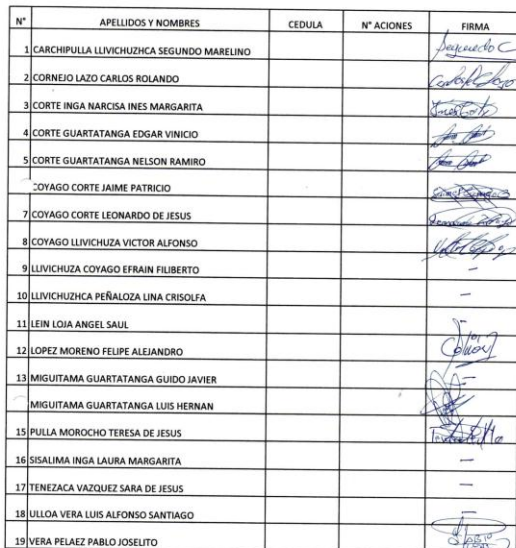 N° APELLIDOS Y NOMBRES CEDULA N° ACIONES FIRMA
1 CARCHIPULLA LLIVICHUZHCA SEGUNDO MARELINO Segundo C
2 CORNEJO LAZO CARLOS ROLANDO
3 CORTE INGA NARCISA INES MARGARITA
4 CORTE GUARTATANGA EDGAR VINICIO
5 CORTE GUARTATANGA NELSON RAMIRO
COYAGO CORTE JAIME PATRICIO
7 COYAGO CORTE LEONARDO DE JESUS
8 COYAGO LLIVICHUZA VICTOR ALFONSO
9 LLIVICHUZA COYAGO EFRAIN FILIBERTO –
10 LLIVICHUZHCA PEÑALOZA LINA CRISOLFA –
11 LEIN LOJA ANGEL SAUL –
12 LOPEZ MORENO FELIPE ALEJANDRO
13 MIGUITAMA GUARTATANGA GUIDO JAVIER –
MIGUITAMA GUARTATANGA LUIS HERNAN
15 PULLA MOROCHO TERESA DE JESUS
16 SISALIMA INGA LAURA MARGARITA –
17 TENEZACA VAZQUEZ SARA DE JESUS –
18 ULLOA VERA LUIS ALFONSO SANTIAGO –
19 VERA PELAEZ PABLO JOSELITO